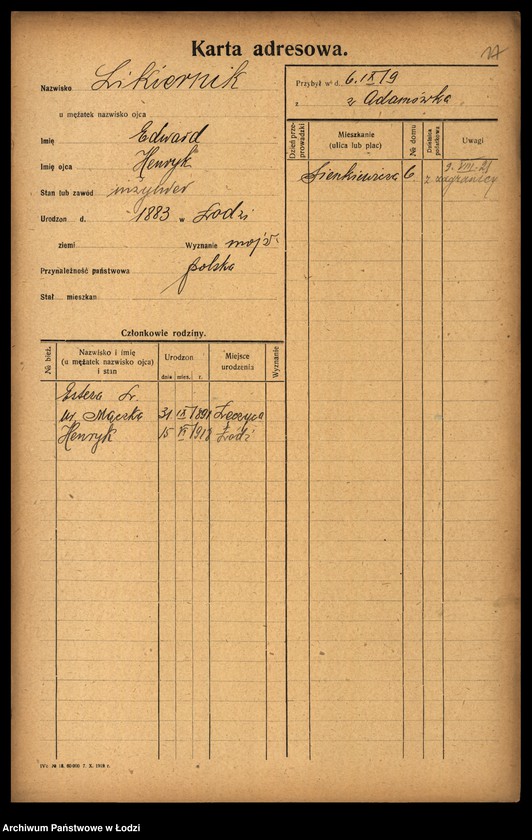 Karta adresowa.
Nazwisko Likiernik
u mężatek nazwisko ojca
Imię Edward
Imię ojca Henryk
Stan lub zawód inżynier
Urodzon d. 1883 w Łodzi
ziemi Wyznanie mojż.
Przynależność państwowa polska
Stał. mieszkan.
Przybył w d. 6.IX 19
z z Adamówka
Dzień przeprowadzki
Mieszkanie (ulica lub plac)
№ domu
Dzielnica
Uwagi
Sienkiewicza 6 z zagranicy
Członkowie rodziny.
№ bież.
Nazwisko i imię (u mężatek nazwisko ojca) i stan
Urodzon
dnia mies. r.
Miejsce urodzenia
Wyznanie
Estera
ur. Mączka 31 IX 1891 Łęczyca
Henryk 15 VI 1918 Łódź
Archiwum Państwowe w Łodzi